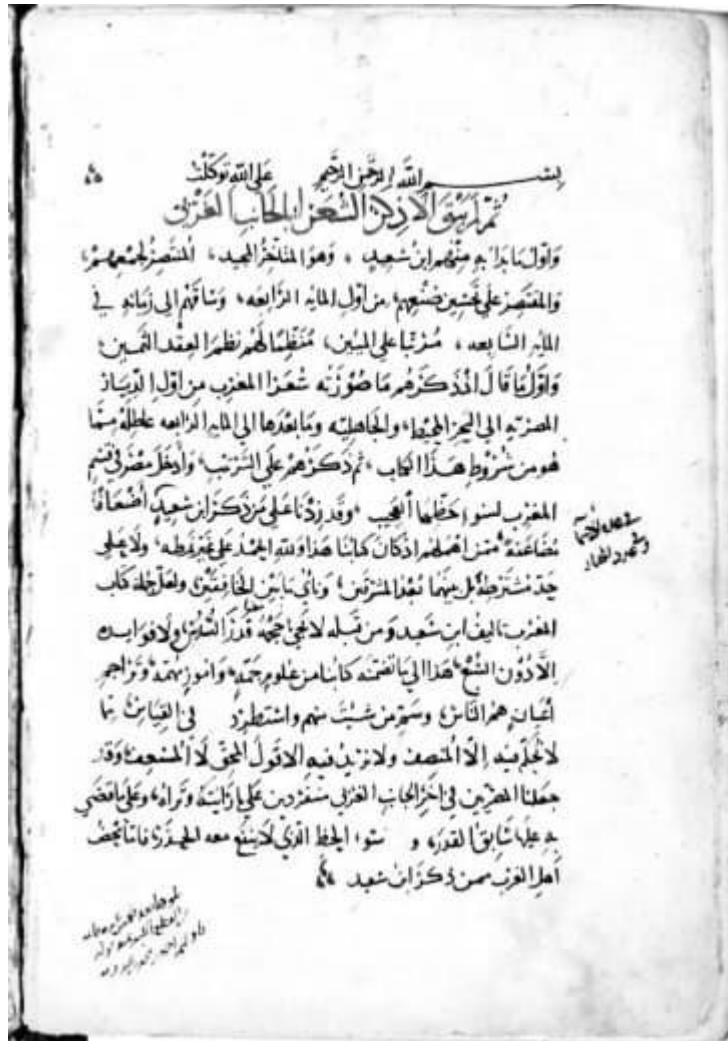 بسم الله الرحمن الرحيم على الله توكلت
ثم لم يبق الا ذكر الشعراء بالجانب الغربى
واول ما بدا به منهم ابن سعيد، وهو المتاخر المجيد، المنتصر لجمعهم،
والمقتصر على تحسين صنعهم، من اول المايه الرابعه، وساقهم الى زمانه في
المايه السابعه، مرتبا على المبين، منظما لهم نظم العقد الثمين،
واول ما قال المذكرهم ما صورته شعرا المغرب من اول الديار
المصريه الى البحر المحيط، والجاهليه وما بعدها الى المايه الرابعه عاطله مما
هو من شروط هذا الكتاب، ثم ذكرهم على الترتيب، وادخل مصر في قسم
المغرب لسوء حظها العجيب، وقد زدنا على من ذكر ابن سعيد اضعافا
مضاعفة، ممن اهملهم اذ كان كتابنا هذا ولله الحمد على غير نمطه، ولا على
حد مشترطه بل بينهما بعد المشرقين، وناي ما بين الخافقين، ولعل جملة كتاب
المغرب تاليف ابن سعيد ومن قبله لا يجي حجمه قدر السدس، ولا فوايده
الا دون التسع، هذا الى ما تضمنه كتابنا من علوم جمه، وامور مهمه، وتراجم
اعيان هم الناس، وسم من شيت منهم واستطرد في القياس بما
لا يحكم فيه الا المنصف ولا نريد فيه الا قول المحق لا المسعف، وقد
جعلنا المصريين في اخر الجانب الغربي منفردين على ما رايته وتراه، وعلى ما قضى
به عليها سابق القدر، و سوء الحظ الذي لا ينفع معه الحذر، فاما محض
اهل الغرب ممن ذكر ابن سعيد